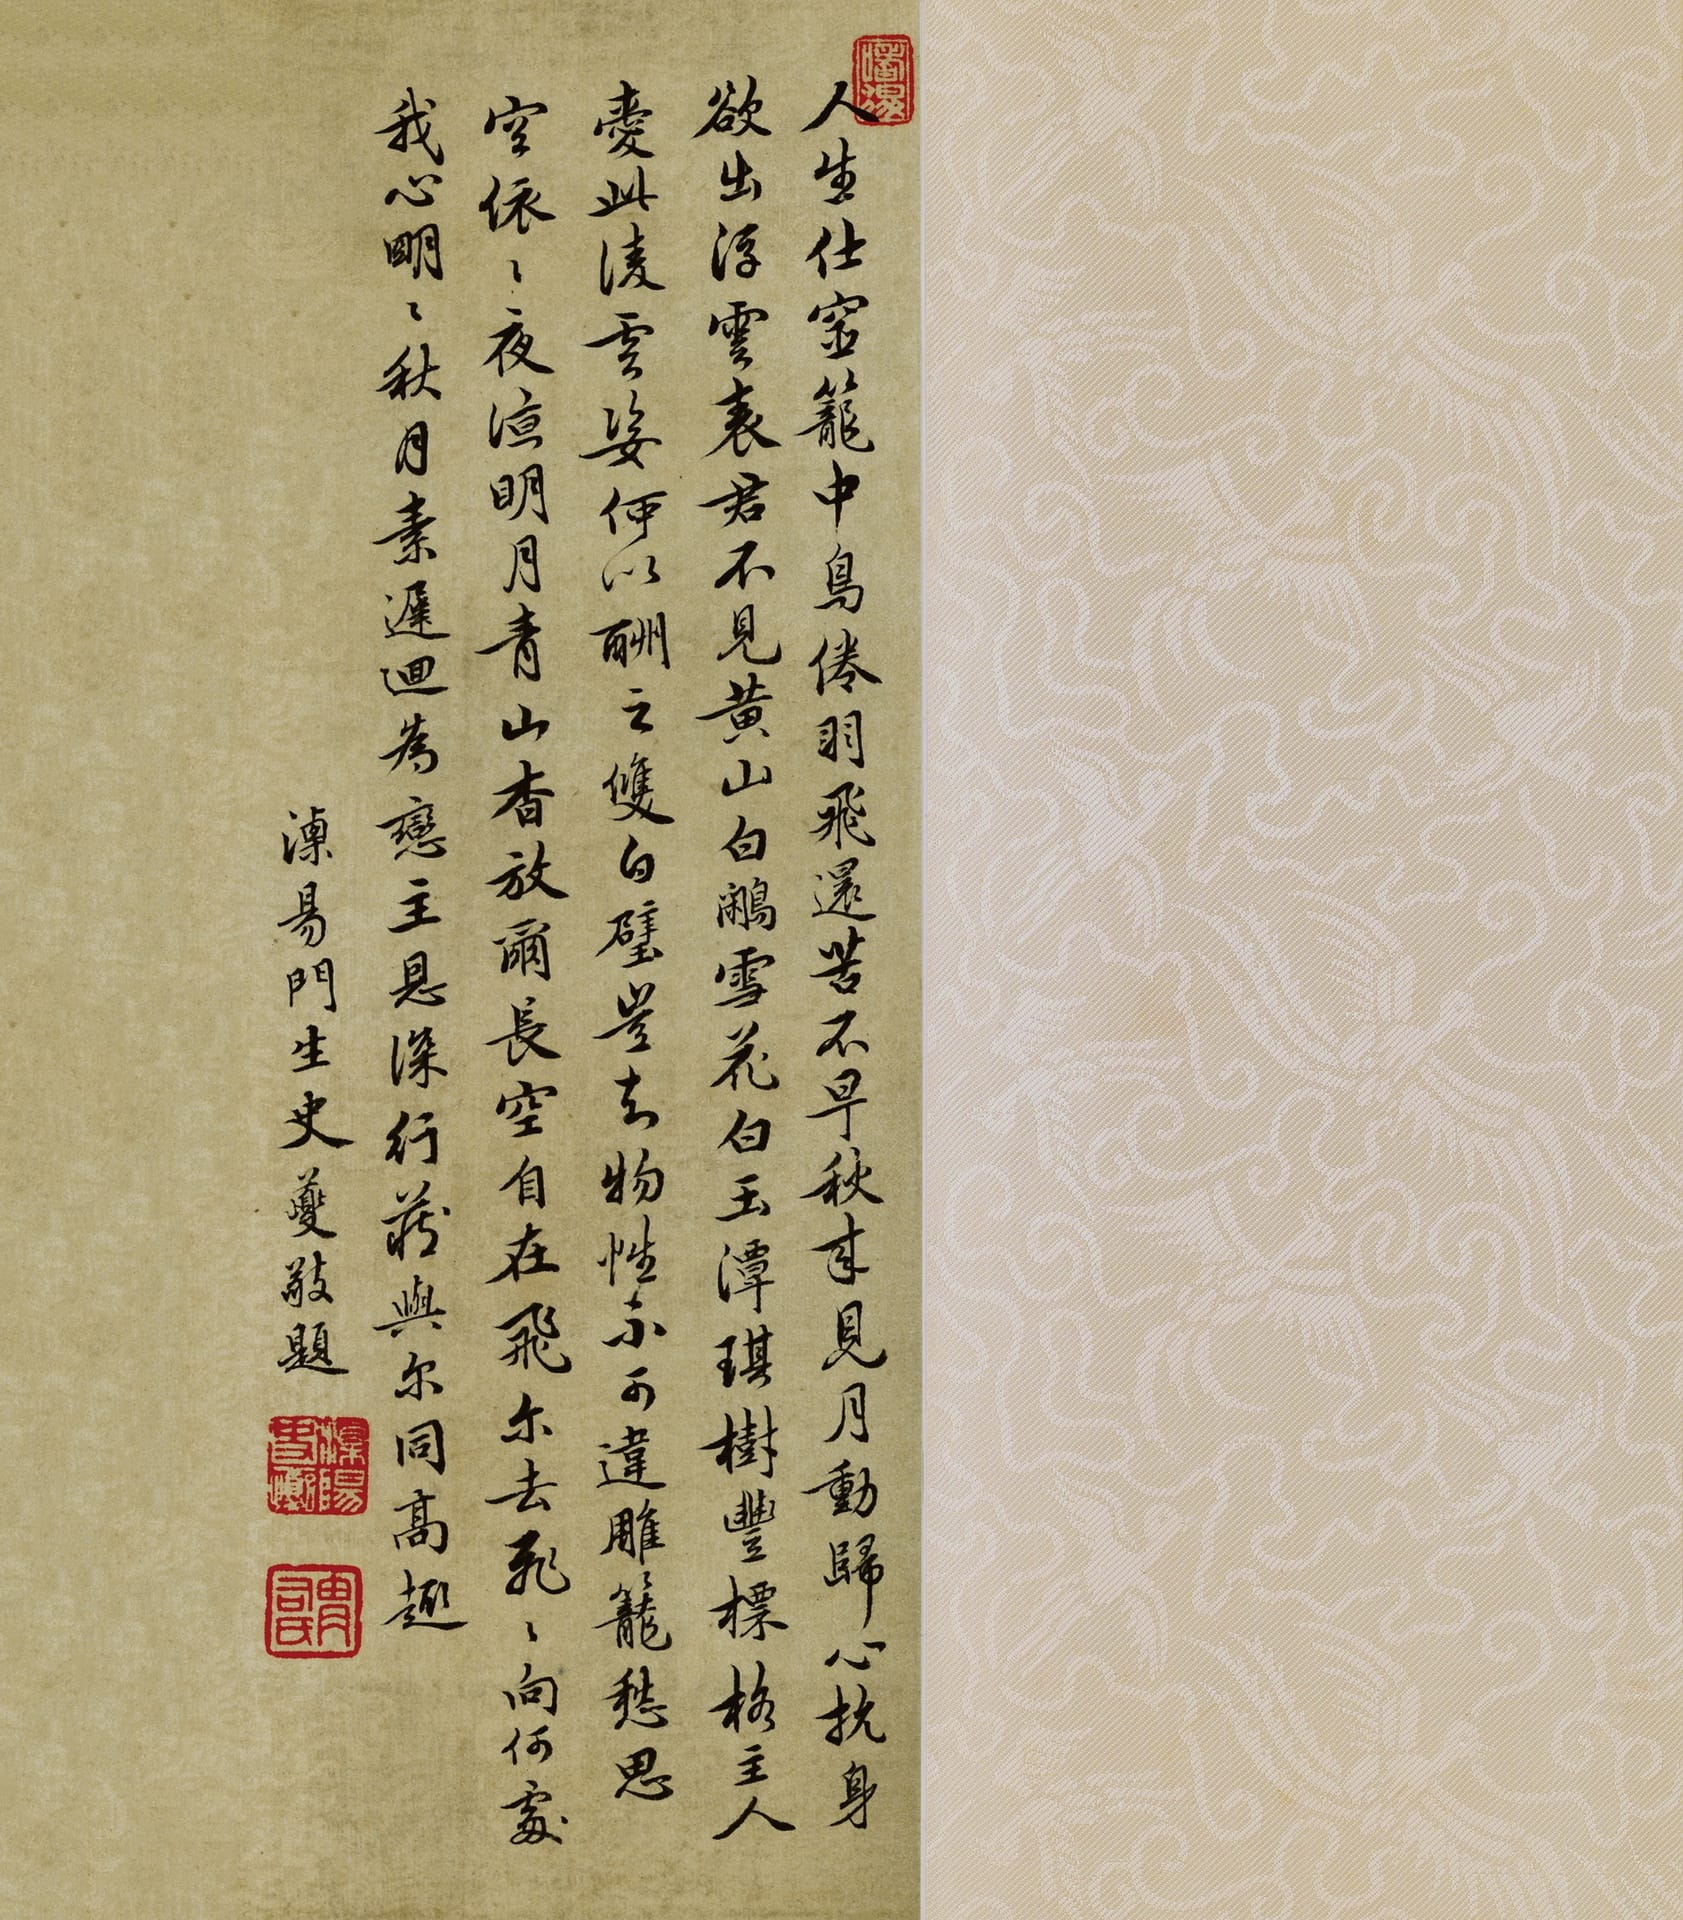 人生仕宦籠中鳥倦羽飛還苦不早秋來見月動歸心抗身
欲出浮雲表君不見黃山白鷳雪花白玉潭琪樹豐標格主人
愛此淩雲姿何以酬之雙白璧豈知物性不可違雕籠愁思
空依〻夜涼明月青山杳放爾長空自在飛尔去飛〻向何處
我心明〻秋月素遲迴為戀主恩深行藏與尔同高趣
溧易門生史夔敬題
溧陽史夔
胄司氏